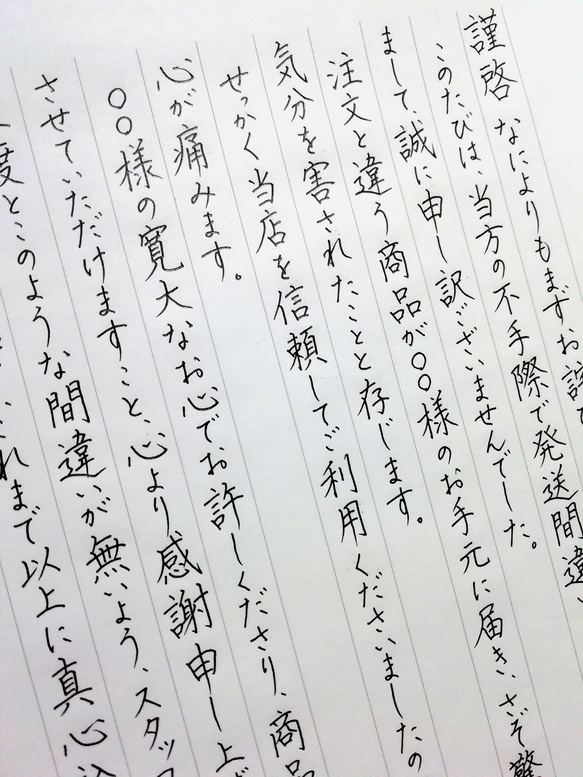 謹啓 なによりもまずお詫
このたびは、当方の不手際で発送間違い
まして、誠に申し訳ございませんでした。
注文と違う商品が〇〇様のお手元に届き、さぞ驚
気分を害されたことと存じます。
せっかく当店を信頼してご利用くださいましたの
心が痛みます。
〇〇様の寛大なお心でお許しくださり、商品
させていただけますこと、心より感謝申し上げ
度とこのような間違いが無いよう、スタッフ
れまで以上に真心込